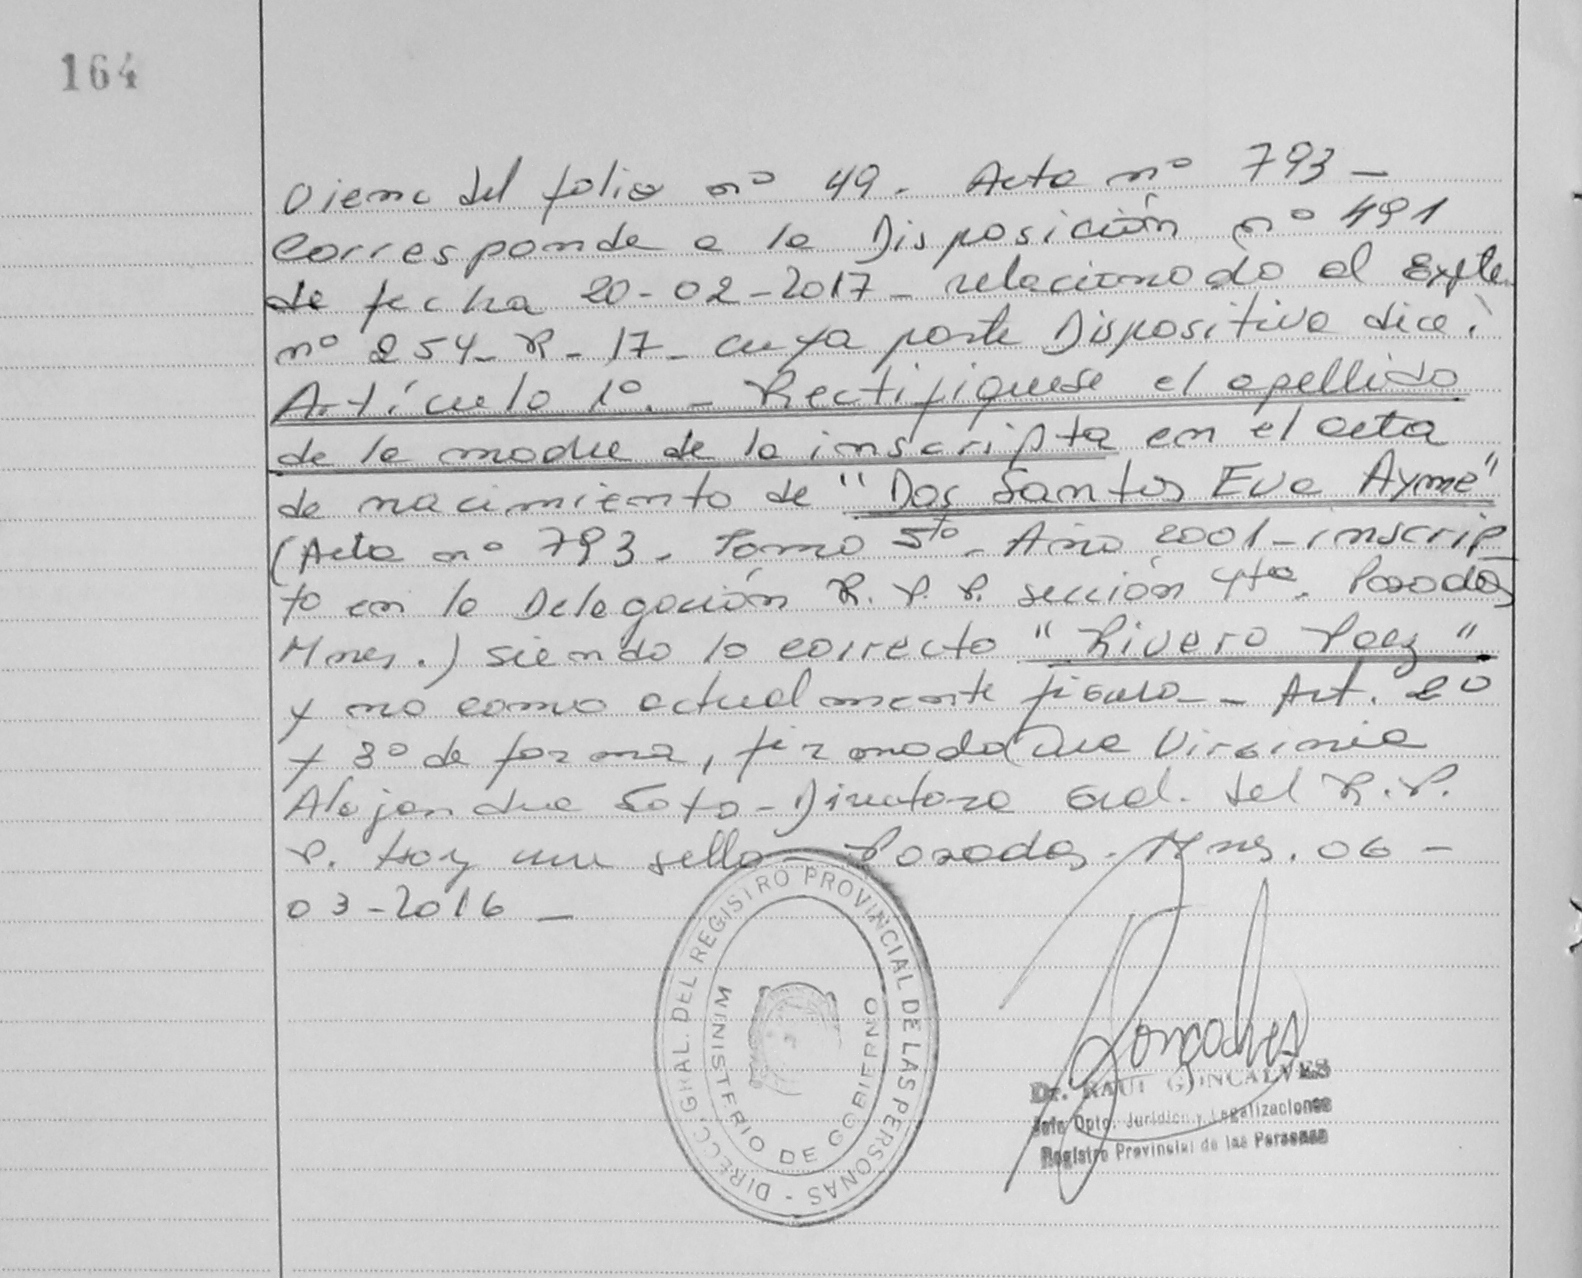 164
Viene del folio nº 49. Acta nº 793 -
Corresponde a la Disposición nº 491
de fecha 20-02-2017 - relacionado al Expte.
nº 254-R-17- cuya parte Dispositiva dice:
Artículo 1º. - Rectifiquese el apellido
de la madre de la inscripta en el acta
de nacimiento de "Dos Santos Eva Ayme"
(Acta nº 793. Tomo 5to - Año 2001 - inscrip
to en la Delegación R. P. P. sección 4ta. Posadas
Mnes.) siendo lo correcto "Rivero Paez"
y no como actualmente figura - Art. 2º
y 3º de forma, firmado Dra Virginia
Alejandra Soto - Directora Gral. del R.P.
P. Hay un sello - Posadas - Mnes. 06 -
03-2016 -
DIRECC. GRAL. DEL REGISTRO PROVINCIAL DE LAS PERSONAS -
MINISTERIO DE GOBIERNO
Gonçalves
Dr. RAUL GONCALVES
Jefe Dpto. Jurídico y Legalizaciones
Registro Provincial de las Personas